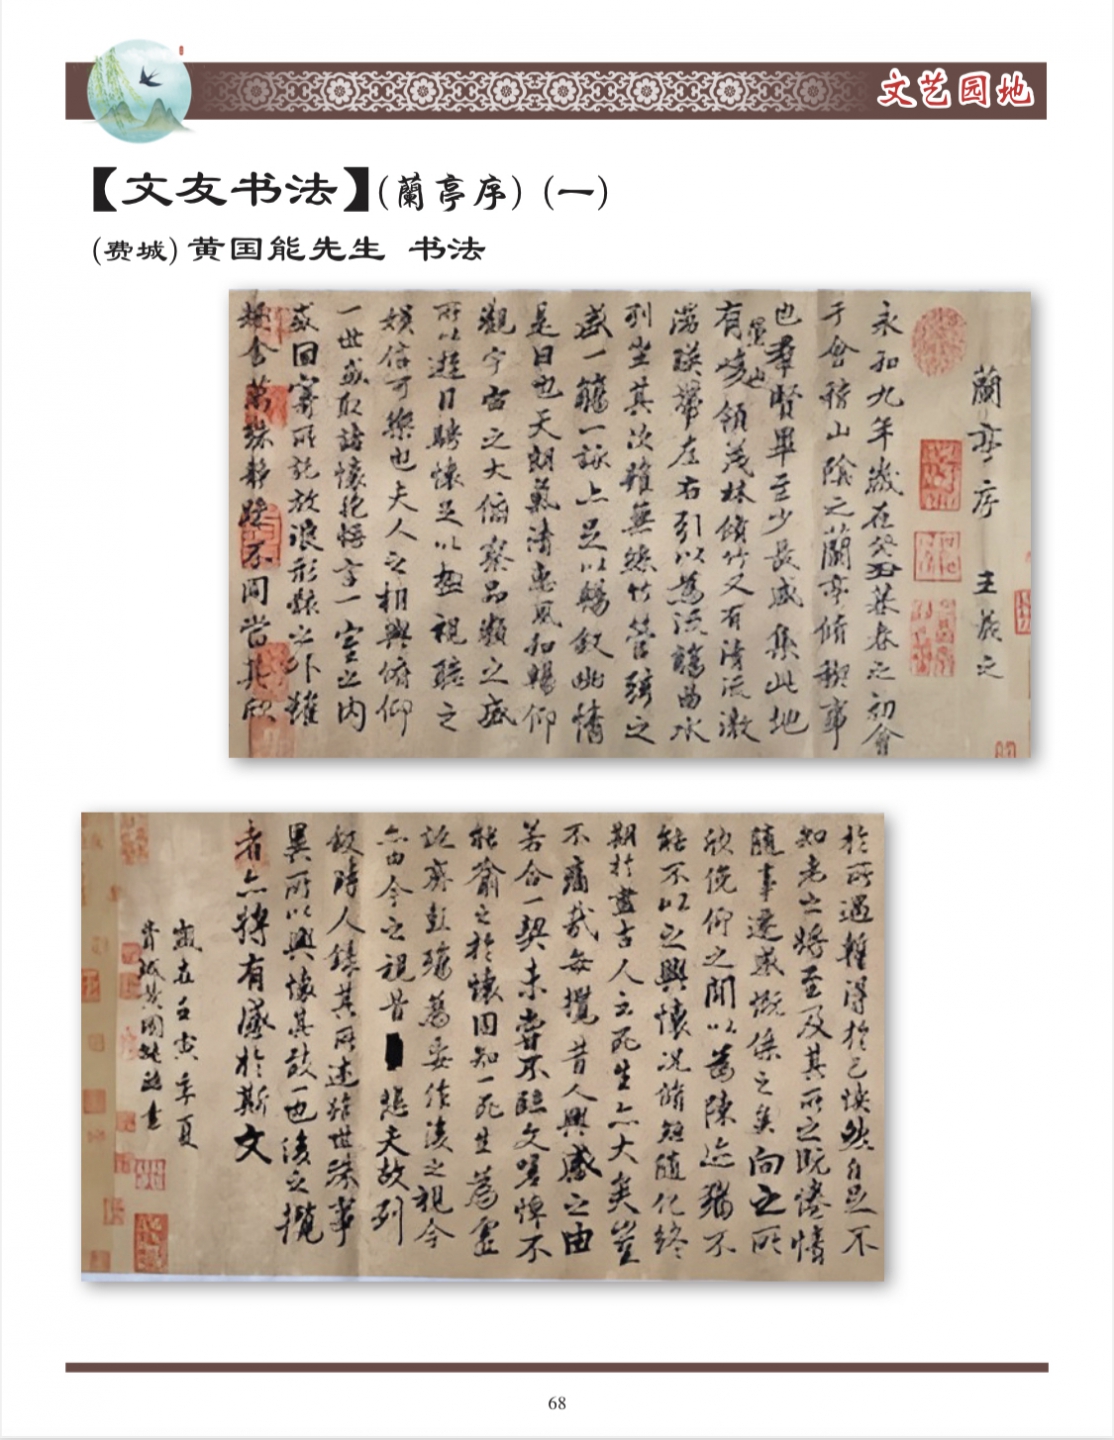 文艺园地
【文友书法】(蘭亭序) (一)
(费城) 黄国能先生 书法
蘭亭序 王羲之
永和九年歲在癸丑暮春之初會
于會稽山陰之蘭亭脩稧事
也羣賢畢至少長咸集此地
有崇山峻領茂林脩竹又有清流激
湍暎帶左右引以為流觴曲水
列坐其次雖無絲竹管弦之
盛一觴一詠亦足以暢敘幽情
是日也天朗氣清惠風和暢仰
觀宇宙之大俯察品類之盛
所以遊目騁懷足以極視聽之
娛信可樂也夫人之相與俯仰
一世或取諸懷抱悟言一室之內
或因寄所託放浪形骸之外雖
趣舍萬殊靜躁不同當其欣
於所遇暫得於己怏然自足不
知老之將至及其所之既惓情
隨事遷感慨係之矣向之所
欣俛仰之間以為陳迹猶不
能不以之興懷況脩短隨化終
期於盡古人云死生亦大矣豈
不痛哉每攬昔人興感之由
若合一契未嘗不臨文嗟悼不
能喻之於懷固知一死生為虛
誕齊彭殤為妄作後之視今
亦由今之視昔悲夫故列
敘時人錄其所述雖世殊事
異所以興懷其致一也後之攬
者亦將有感於斯文
歲在壬寅季夏
費城黃國能書
68